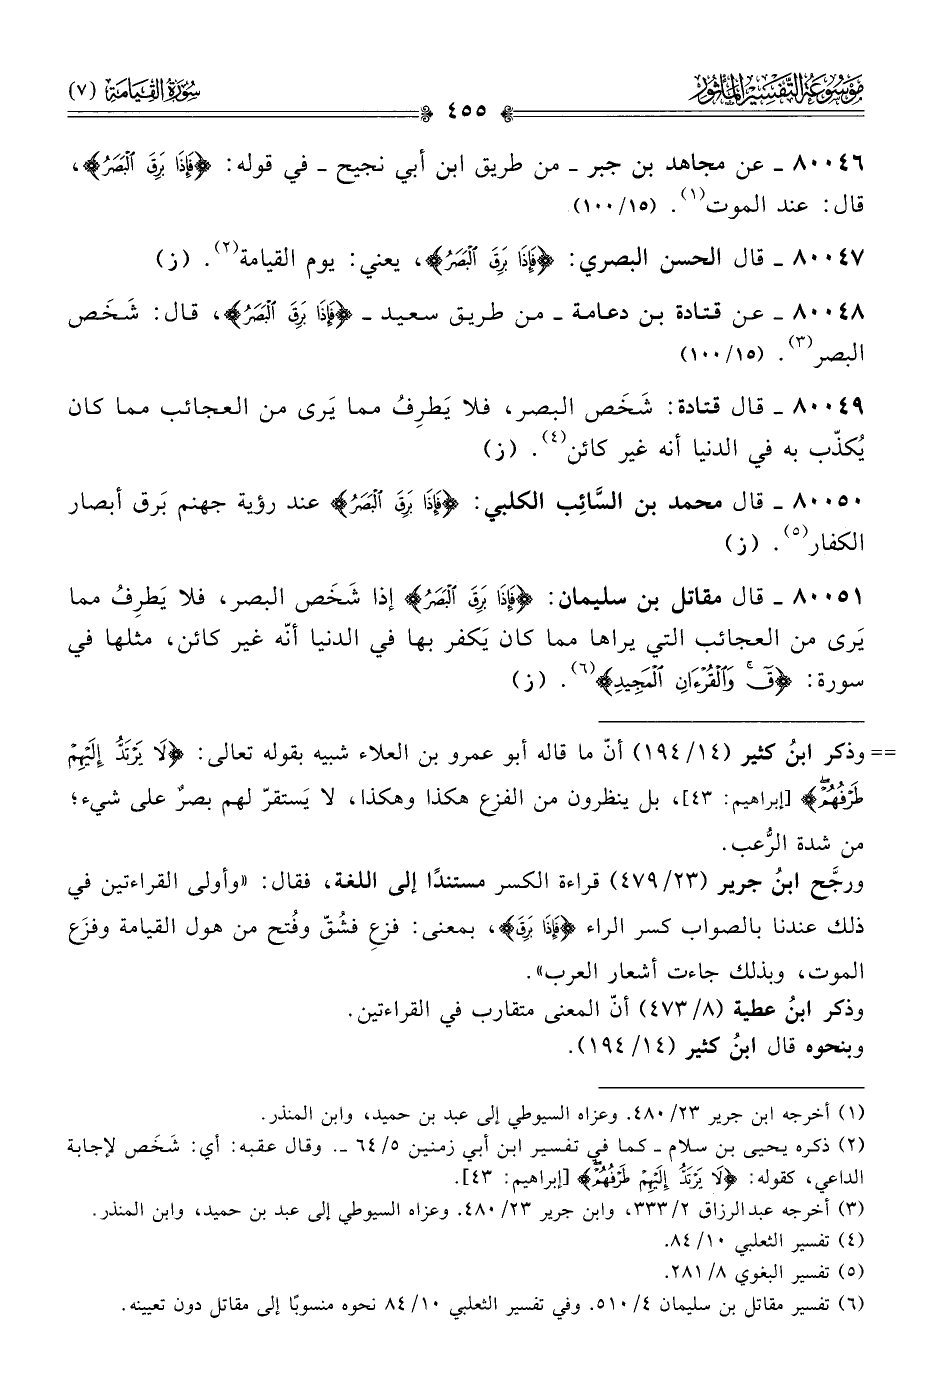 مَوْسُوعَةُ التَّفْسِيرِ المَأْثُور
سُورَةُ القِيَامَةِ (٧)
٤٥٥
٨٠٠٤٦ ـ عن مجاهد بن جبر ـ من طريق ابن أبي نجيح ـ في قوله: ﴿فَإِذَا بَرِقَ ٱلْبَصَرُ﴾،
قال: عند الموت(١). (١٥/ ١٠٠)
٨٠٠٤٧ ـ قال الحسن البصري: ﴿فَإِذَا بَرِقَ ٱلْبَصَرُ﴾، يعني: يوم القيامة(٢). (ز)
٨٠٠٤٨ ـ عن قتادة بن دعامة ـ من طريق سعيد ـ ﴿فَإِذَا بَرِقَ ٱلْبَصَرُ﴾، قال: شَخَص
البصر(٣). (١٥/ ١٠٠)
٨٠٠٤٩ ـ قال قتادة: شَخَص البصر، فلا يَطرِفُ مما يَرى من العجائب مما كان
يُكذّب به في الدنيا أنه غير كائن(٤). (ز)
٨٠٠٥٠ ـ قال محمد بن السَّائِب الكلبي: ﴿فَإِذَا بَرِقَ ٱلْبَصَرُ﴾ عند رؤية جهنم بَرق أبصار
الكفار(٥). (ز)
٨٠٠٥١ ـ قال مقاتل بن سليمان: ﴿فَإِذَا بَرِقَ ٱلْبَصَرُ﴾ إذا شَخَص البصر، فلا يَطرِفُ مما
يَرى من العجائب التي يراها مما كان يَكفر بها في الدنيا أنّه غير كائن، مثلها في
سورة: ﴿قٓۚ وَٱلْقُرْءَانِ ٱلْمَجِيدِ﴾(٦). (ز)
== وذكر ابنُ كثير (١٤/ ١٩٤) أنّ ما قاله أبو عمرو بن العلاء شبيه بقوله تعالى: ﴿لَا يَرْتَدُّ إِلَيْهِمْ
طَرْفُهُمْۖ﴾ [إبراهيم: ٤٣]، بل ينظرون من الفزع هكذا وهكذا، لا يَستقرّ لهم بصرٌ على شيء؛
من شدة الرُّعب.
ورجَّح ابنُ جرير (٢٣/ ٤٧٩) قراءة الكسر مستندًا إلى اللغة، فقال: «وأولى القراءتين في
ذلك عندنا بالصواب كسر الراء ﴿فَإِذَا بَرِقَ﴾، بمعنى: فزع فشُقّ وفُتح من هول القيامة وفزَع
الموت، وبذلك جاءت أشعار العرب».
وذكر ابنُ عطية (٨/ ٤٧٣) أنّ المعنى متقارب في القراءتين.
وبنحوه قال ابنُ كثير (١٤/ ١٩٤).
(١) أخرجه ابن جرير ٢٣/ ٤٨٠. وعزاه السيوطي إلى عبد بن حميد، وابن المنذر.
(٢) ذكره يحيى بن سلام ـ كما في تفسير ابن أبي زمنين ٥/ ٦٤ ـ. وقال عقبه: أي: شَخَص لإجابة
الداعي، كقوله: ﴿لَا يَرْتَدُّ إِلَيْهِمْ طَرْفُهُمْۖ﴾ [إبراهيم: ٤٣].
(٣) أخرجه عبدالرزاق ٢/ ٣٣٣، وابن جرير ٢٣/ ٤٨٠. وعزاه السيوطي إلى عبد بن حميد، وابن المنذر.
(٤) تفسير الثعلبي ١٠/ ٨٤.
(٥) تفسير البغوي ٨/ ٢٨١.
(٦) تفسير مقاتل بن سليمان ٤/ ٥١٠. وفي تفسير الثعلبي ١٠/ ٨٤ نحوه منسوبًا إلى مقاتل دون تعيينه.